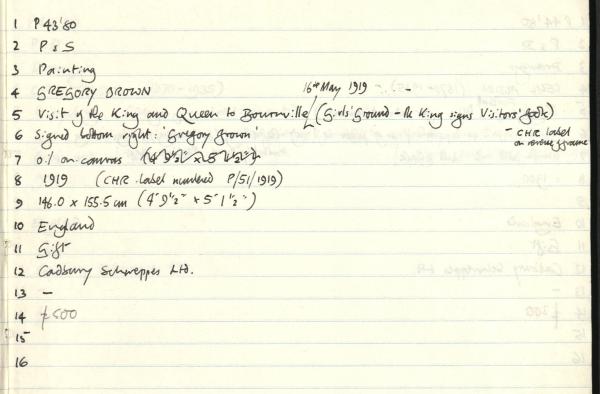 1 P 43'80
2 P & S
3 Painting
4 GREGORY BROWN
16th May 1919
5 Visit of the King and Queen to Bournville (Girls' Ground - the King signs Visitors' Book)
6 Signed bottom right: 'Gregory Brown'
- CHR label on reverse frame
7 oil on canvas
8 1919 (CHR label numbered P/51/1919)
9 146.0 x 155.5 cm (4' 9½" x 5' 1½")
10 England
11 Gift
12 Cadbury Schweppes Ltd.
13 -
14 £500
15
16